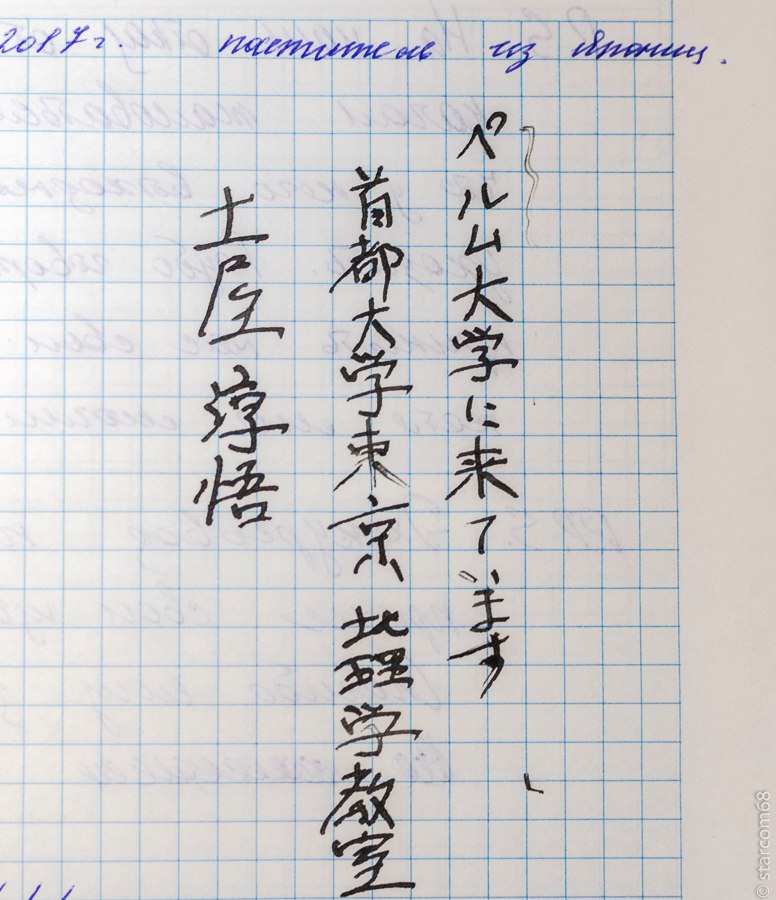 2017г. посетитель из Японии.
ペルム大学に来ています
首都大学東京 地理学教室
土屋 淳悟
© starcom68